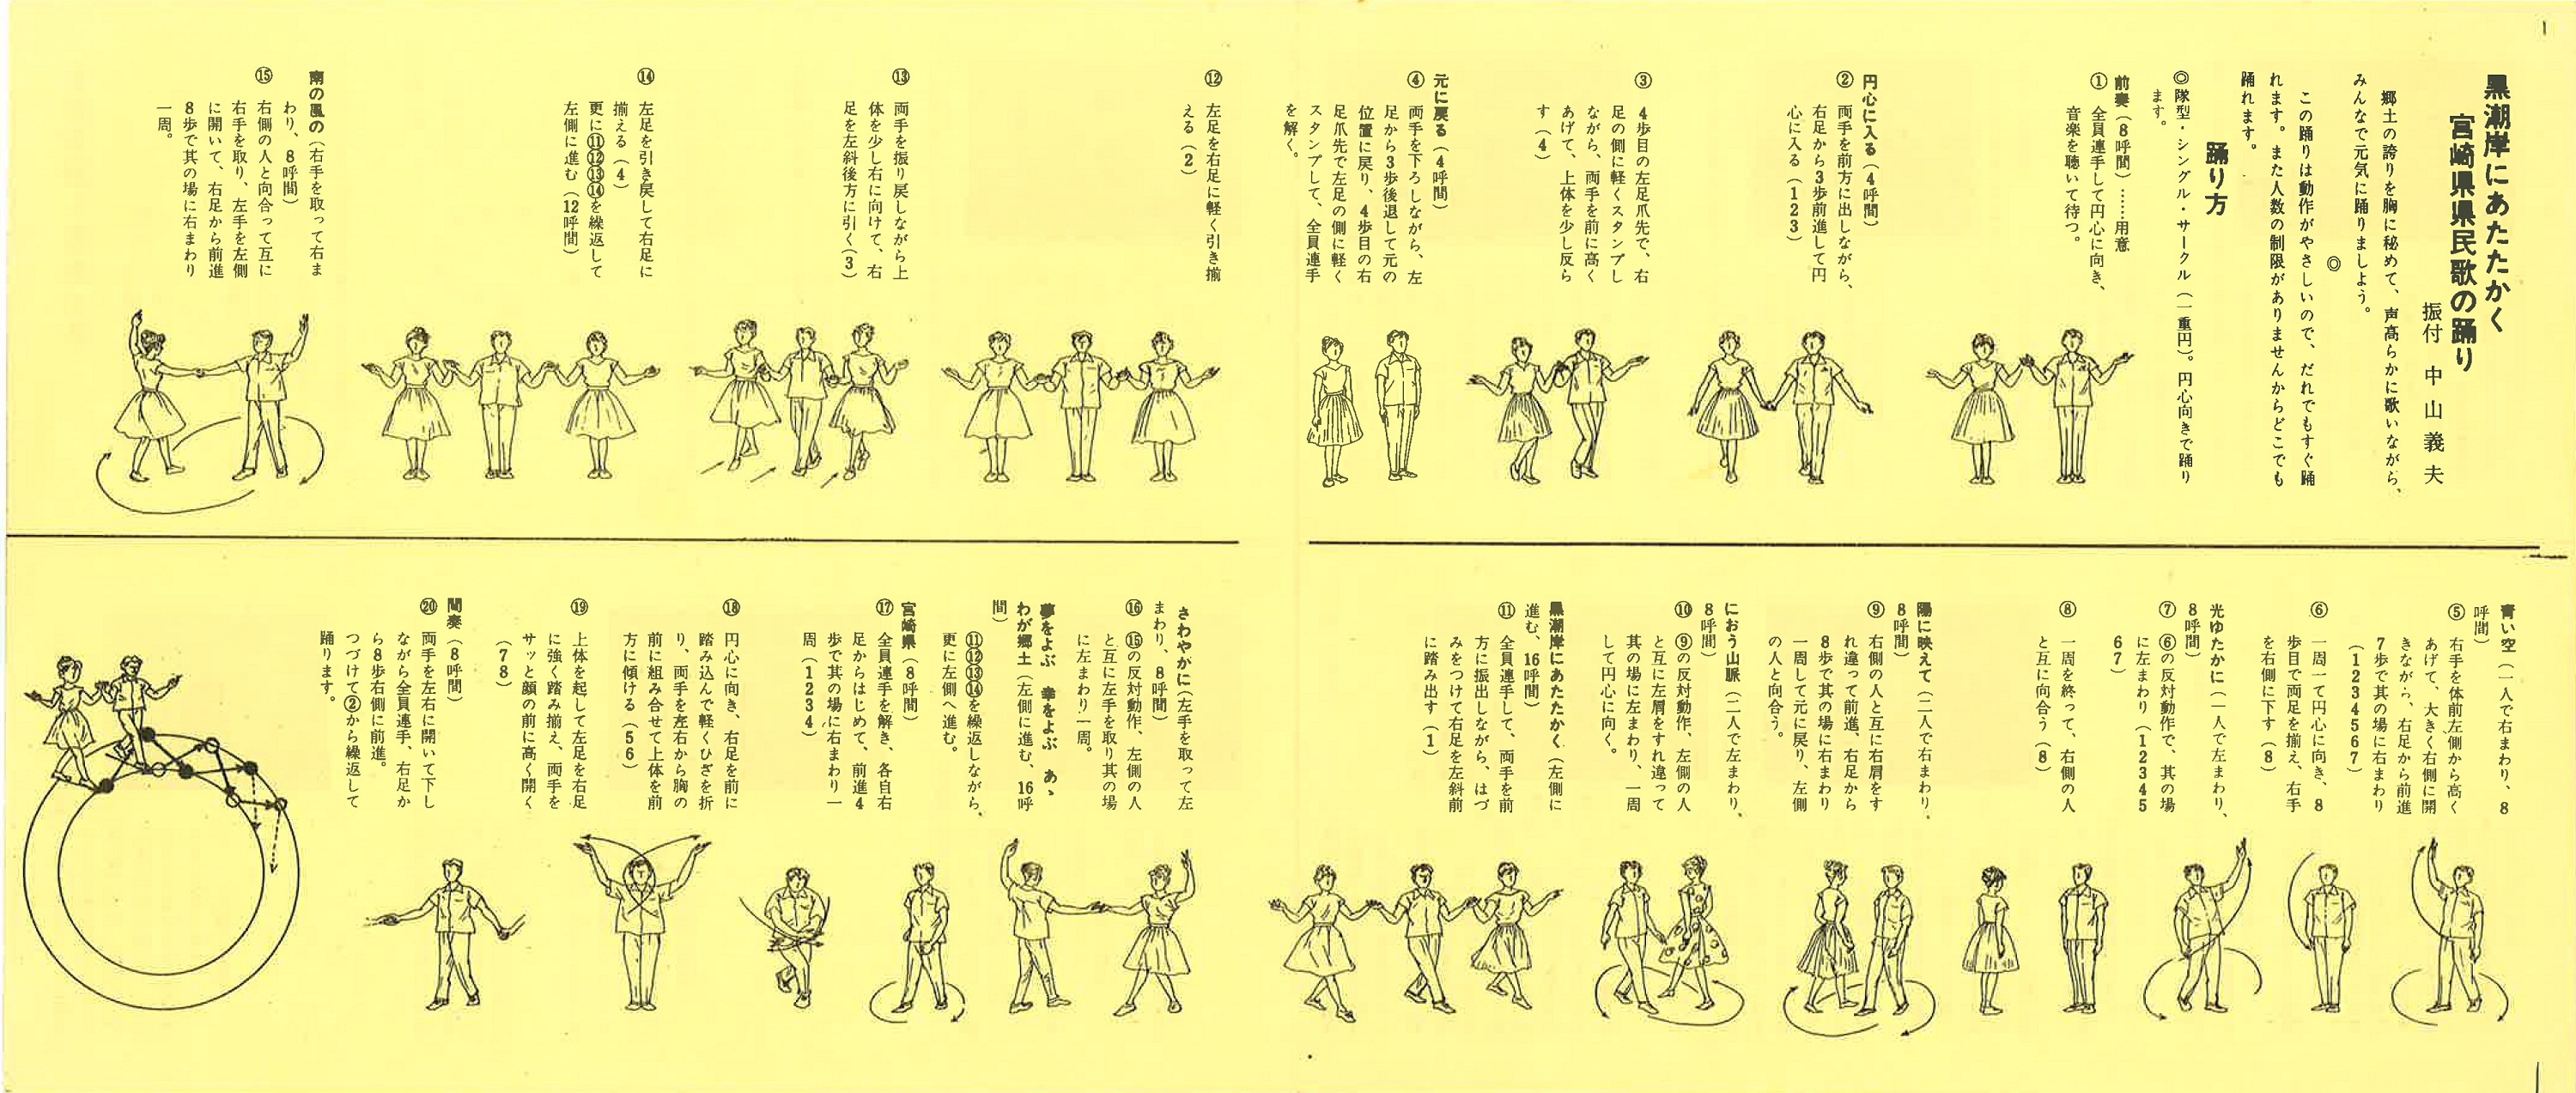 黒潮岸にあたたかく
宮崎県県民歌の踊り
振付　中山義夫
郷土の誇りを胸に秘めて、声高らかに歌いながら、
みんなで元気に踊りましよう。
◎
この踊りは動作がやさしいので、だれでもすぐ踊
れます。また人数の制限がありませんからどこでも
踊れます。
踊り方
◎隊型・シングル・サークル（一重円）。円心向きで踊り
ます。
前奏（8呼間）……用意
① 全員連手して円心に向き、
音楽を聴いて待つ。
円心に入る（4呼間）
② 両手を前方に出しながら、
右足から3歩前進して円
心に入る（123）
③ 4歩目の左足爪先で、右
足の側に軽くスタンプし
ながら、両手を前に高く
あげて、上体を少し反ら
す（4）
元に戻る（4呼間）
④ 両手を下ろしながら、左
足から3歩後退して元の
位置に戻り、4歩目の右
足爪先で左足の側に軽く
スタンプして、全員連手
を解く。
青い空（一人で右まわり、8
呼間）
⑤ 右手を体前左側から高く
あげて、大きく右側に開
きながら、右足から前進
7歩で其の場に右まわり
（1234567）
⑥ 一周って円心に向き、8
歩目で両足を揃え、右手
を右側に下す（8）
光ゆたかに（一人で左まわり、
8呼間）
⑦ ⑥の反対動作で、其の場
に左まわり（12345
67）
⑧ 一周を終って、右側の人
と互に向合う（8）
陽に映えて（二人で右まわり、
8呼間）
⑨ 右側の人と互に右肩をす
れ違って前進、右足から
8歩で其の場に右まわり
一周して元に戻り、左側
の人と向合う。
におう山脈（二人で左まわり、
8呼間）
⑩ ⑨の反対動作、左側の人
と互に左肩をすれ違って
其の場に左まわり、一周
して円心に向く。
黒潮岸にあたたかく（左側に
進む、16呼間）
⑪ 全員連手して、両手を前
方に振出しながら、はづ
みをつけて右足を左斜前
に踏み出す（1）
⑫ 左足を右足に軽く引き揃
える（2）
⑬ 両手を振り戻しながら上
体を少し右に向けて、右
足を左斜後方に引く（3）
⑭ 左足を引き戻して右足に
揃える（4）
更に⑪⑫⑬⑭を繰返して
左側に進む（12呼間）
南の風の（右手を取って右ま
わり、8呼間）
⑮ 右側の人と向合って互に
右手を取り、左手を左側
に開いて、右足から前進
8歩で其の場に右まわり
一周。
さわやかに（左手を取って左
まわり、8呼間）
⑯ ⑮の反対動作、左側の人
と互に左手を取り其の場
に左まわり一周。
夢をよぶ　幸をよぶ　あゝ
わが郷土（左側に進む、16呼
間）
⑪⑫⑬⑭を繰返しながら、
更に左側へ進む。
宮崎県（8呼間）
⑰ 全員連手を解き、各自右
足からはじめて、前進4
歩で其の場に右まわり一
周（1234）
⑱ 円心に向き、右足を前に
踏み込んで軽くひざを折
り、両手を左右から胸の
前に組み合せて上体を前
方に傾ける（56）
⑲ 上体を起して左足を右足
に強く踏み揃え、両手を
サッと顔の前に高く開く
（78）
間奏（8呼間）
⑳ 両手を左右に開いて下し
ながら全員連手、右足か
ら8歩右側に前進。
つづけて②から繰返して
踊ります。